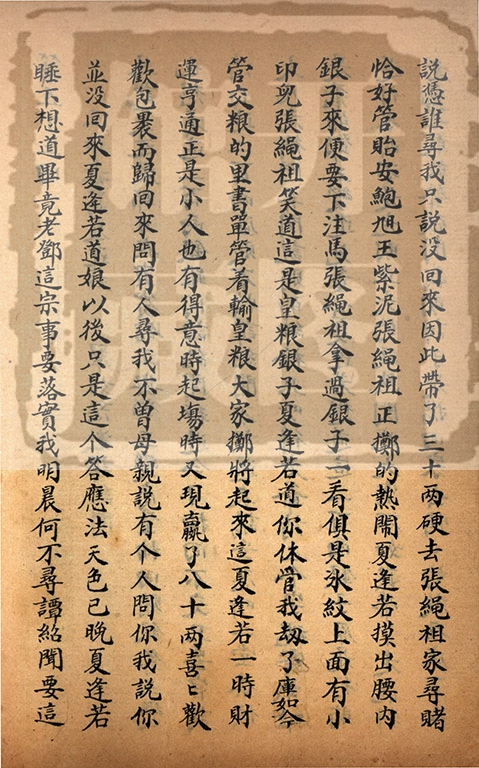 說憑誰尋找只說没回來因此帶了三十两硬去張繩祖家尋賭
恰好管貽安鮑旭王紫泥張繩祖正擲的熱鬧夏逢若摸出腰内
銀子來便要下注馬張繩祖拿過銀子一看俱是氷紋上面有小
印兒張繩祖笑道這是皇粮銀子夏逢若道你休管我刼了庫如今
管交粮的里書單管着輸皇粮大家擲將起來這夏逢若一時財
運亨通正是小人也有得意時起塲時又現贏了八十两喜〻歡
歡包裹而歸回來問有人尋我不曾母親說有个人問你我說你
並没回來夏逢若道娘以後只是這个答應法天色已晚夏逢若
睡下想道畢竟老鄧這宗事要落實我明晨何不尋譚紹聞要這